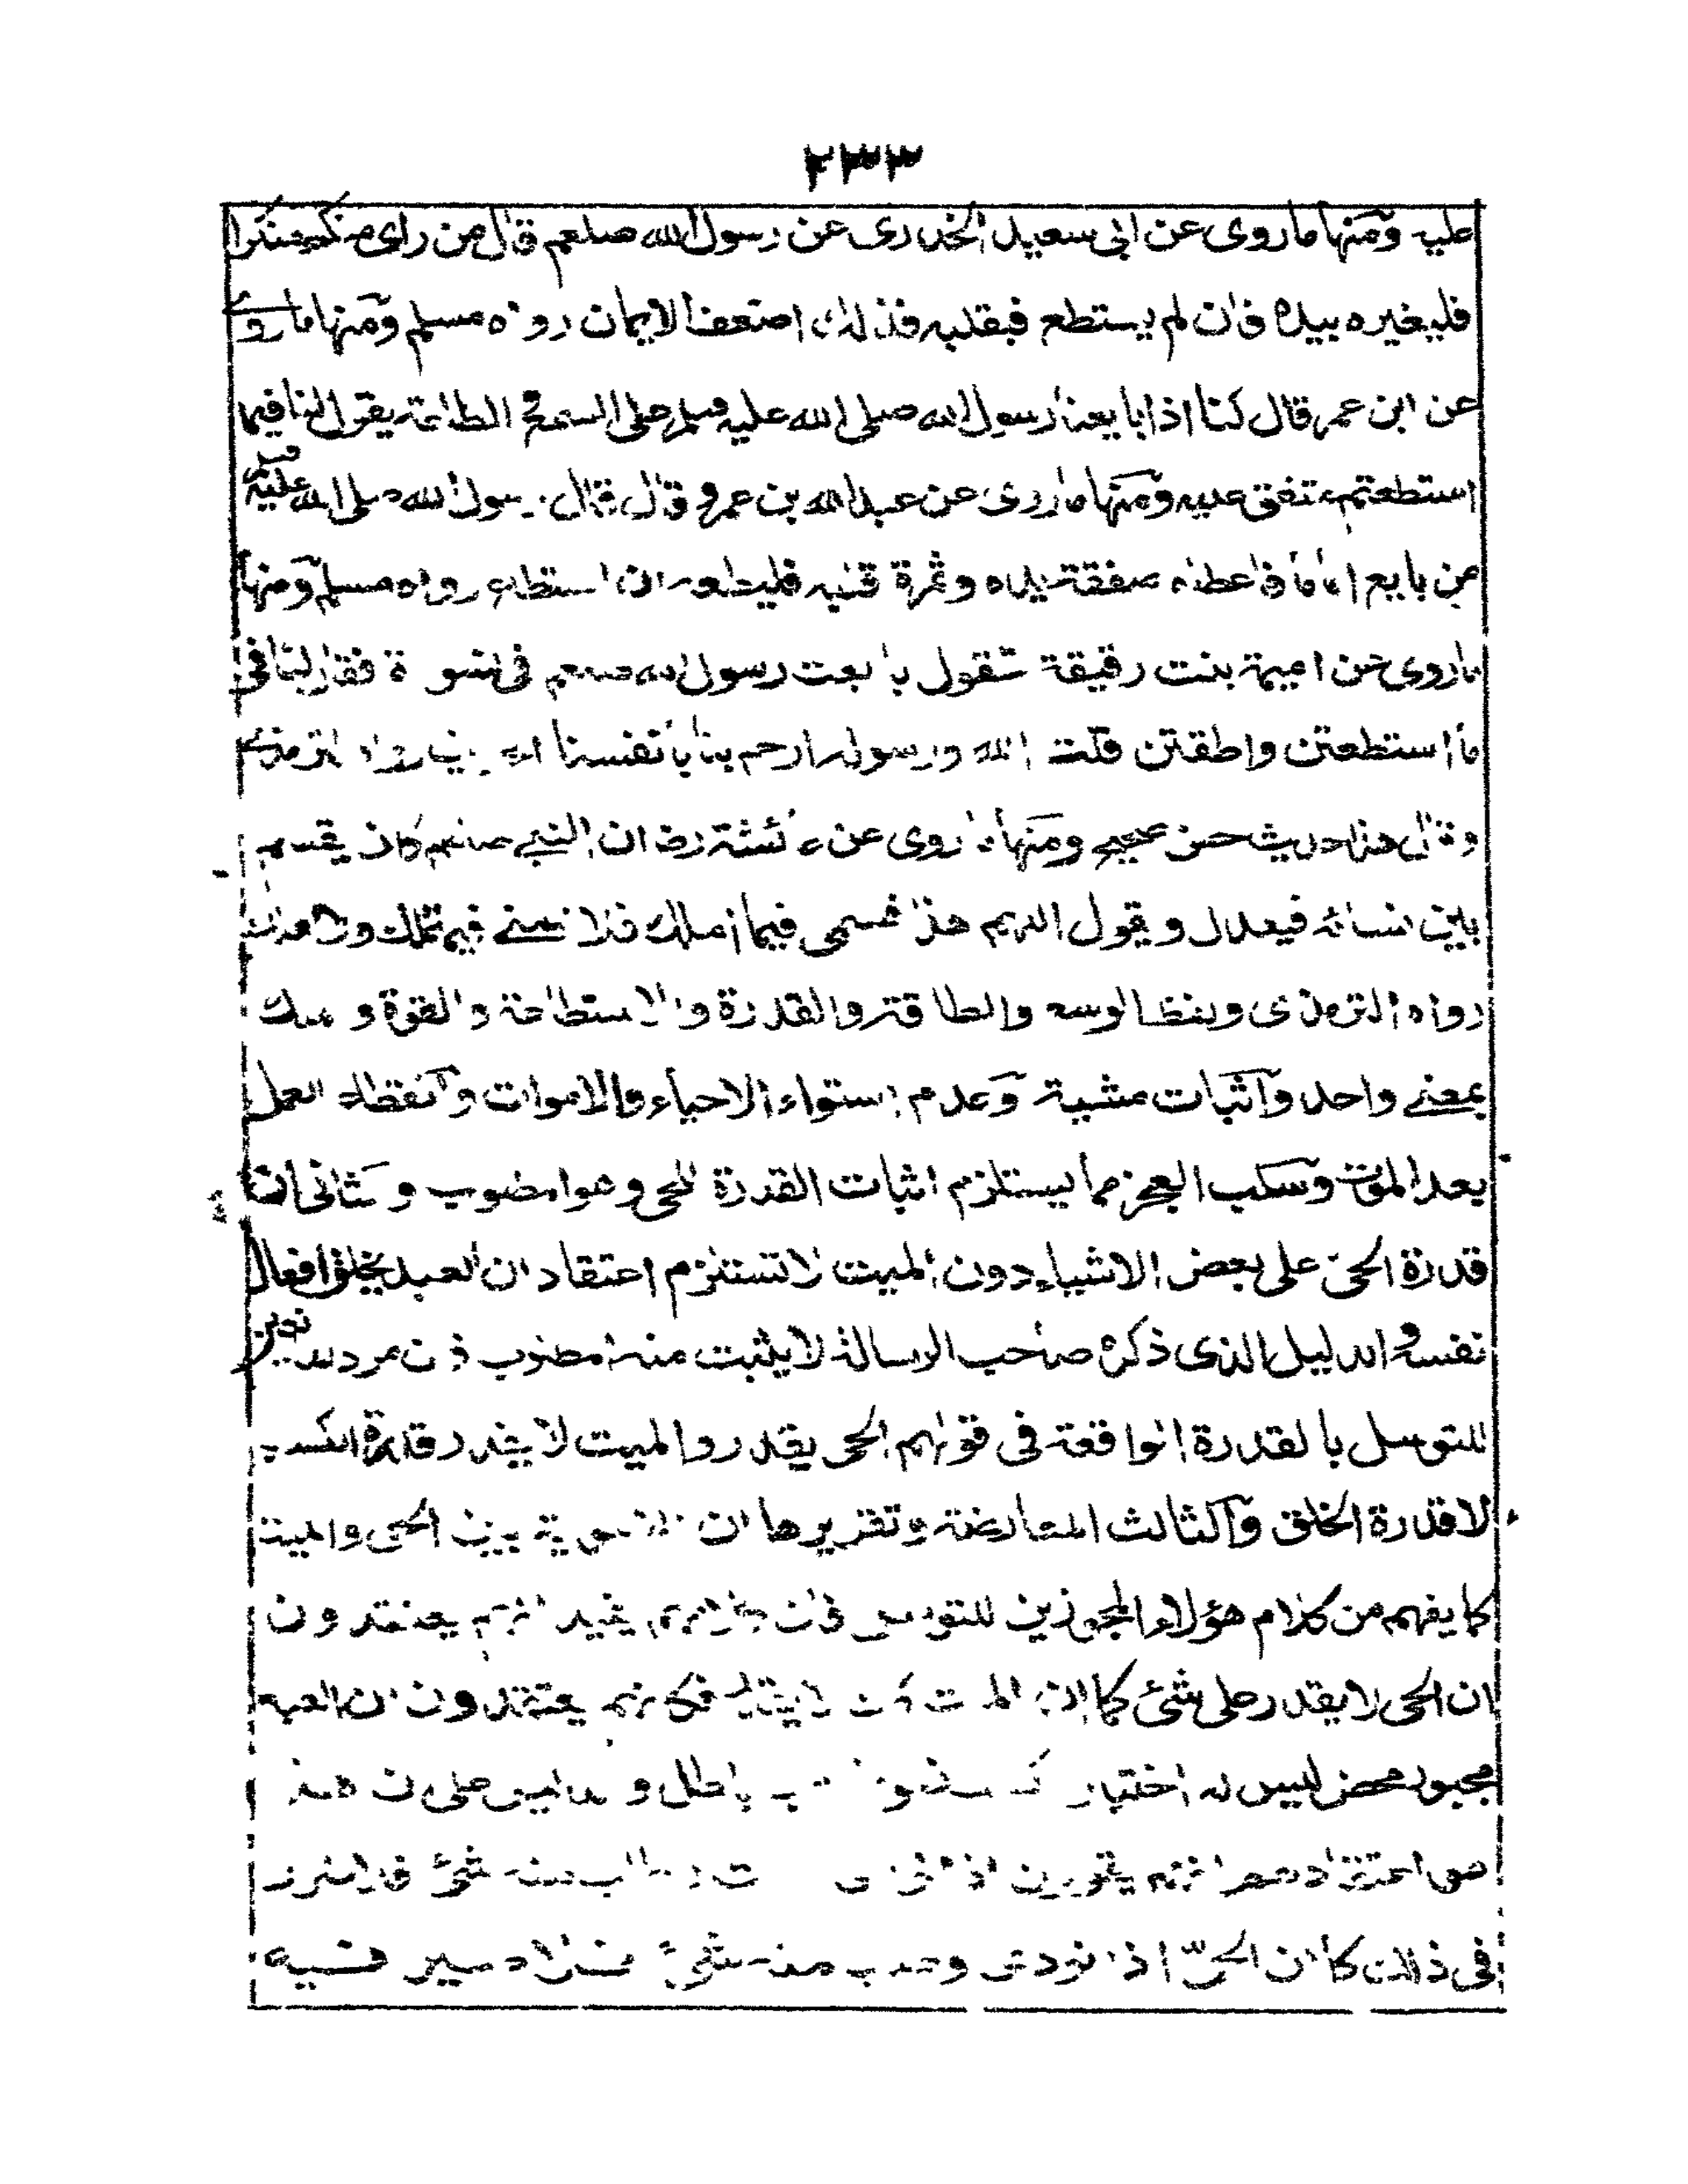 ٢٣٣
عليه ومنها ما روى عن ابى سعيد الخدرى عن رسول الله صلعم قال من راى منكم منكرا
فليغيره بيده فان لم يستطع فبقلبه فذلك اضعف الايمان رواه مسلم ومنها ما روى
عن ابن عمر قال كنا اذا بايعنا رسول الله صلى الله عليه وسلم على السمع والطاعة يقول لنا فيما
استطعتم متفق عليه ومنها ما روى عن عبد الله بن عمرو قال قال رسول الله صلى الله عليه وسلم
من بايع اماما فاعطاه صفقة يده وثمرة قلبه فليطعه ان استطاع رواه مسلم ومنها
ما روى عن اميمة بنت رقيقة تقول بايعت رسول الله صلعم فى نسوة فقال لنا فى
ما استطعتن واطقتن قلت الله ورسوله ارحم بنا بانفسنا الترمذى
وقال هذا حديث حسن صحيح ومنها ما روى عن عائشة رض ان النبى صلعم كان يقسم
بين نسائه فيعدل ويقول اللهم هذا قسمى فيما املك فلا تلمنى فيما تملك ولا املك
رواه الترمذى ولفظ الوسع والطاقة والقدرة والاستطاعة والقوة و
بمعنى واحد واثبات مشية وعدم استواء الاحياء والاموات وانقطاع العمل
بعد الموت وسلب العجز مما يستلزم اثبات القدرة للحى وهو المطلوب والثانى ان
قدرة الحى على بعض الاشياء دون الميت لا تستلزم اعتقاد ان العبد يخلق افعال
نفسه والدليل الذى ذكره صاحب الرسالة لا يثبت منه المطلوب فان مراد
للتوسل بالقدرة الواقعة فى قولهم الحى يقدر والميت لا يقدر قدرة الكسب
لا قدرة الخلق والثالث المعارضة وتقريرها ان التسوية بين الحى والميت
كما يفهم من كلام هؤلاء المجوزين للتوسل فان كلامهم يفيد انهم يعتقدون
ان الحى لا يقدر على شئ كما ان الميت لا يقدر فكانهم يعتقدون ان العبد
مجبور محض ليس له اختيار باطل والدليل على ان هذا
هو اعتقادهم انهم يقولون اذا شئ فلا ضرر
فى ذلك كما ان الحى اذا نودى وطلب منه شئ فلا ضير فيه